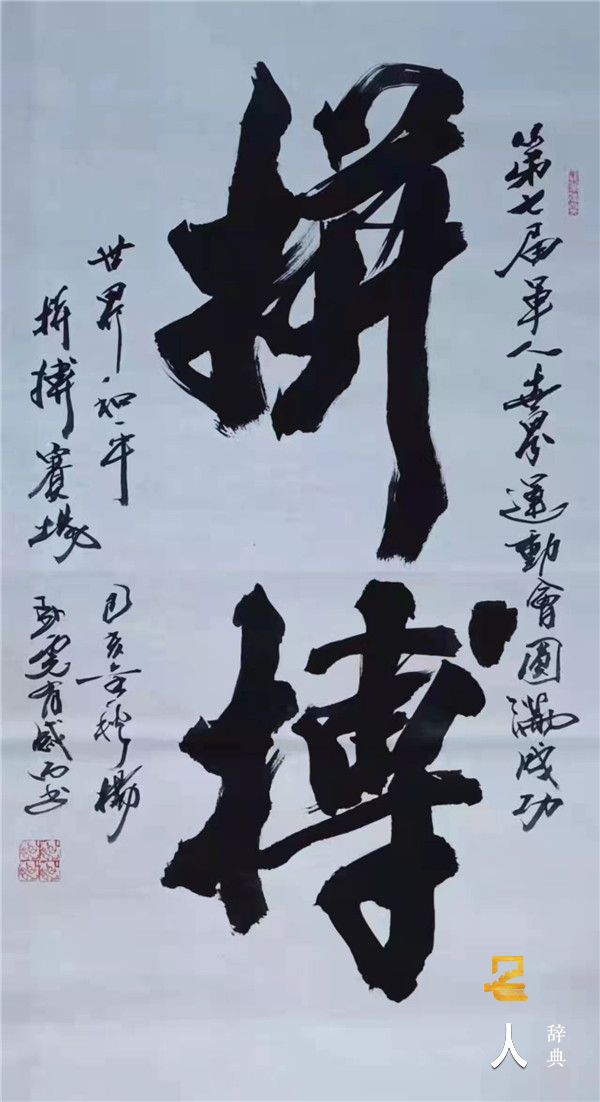 第七届軍人世界運動會圓滿成功
拼搏
世界和平
拼搏賽場
己亥
有感而书
名人
辞典